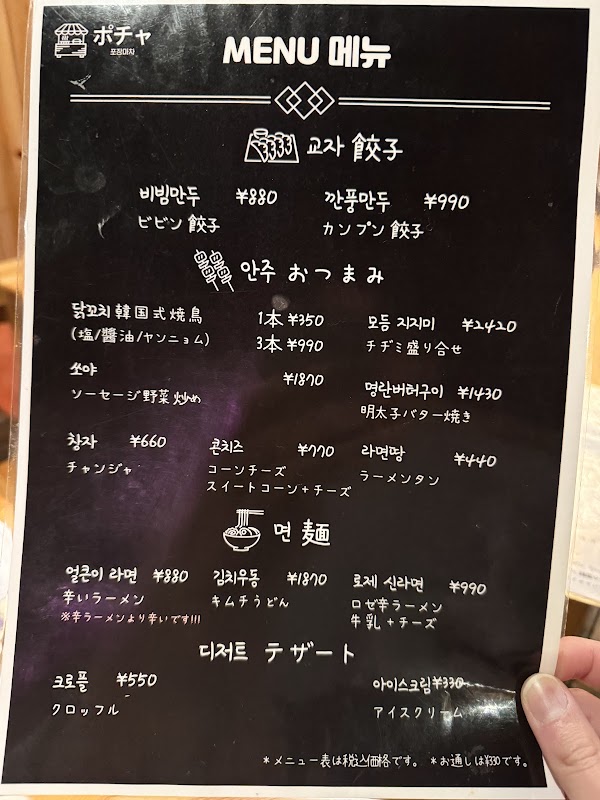 ポチャ
포장마차
MENU 메뉴
교자 餃子
비빔만두 ¥880
ビビン餃子
깐풍만두 ¥990
カンプン餃子
안주 おつまみ
닭꼬치 韓国式焼鳥 1本 ¥350
(塩/醬油/ヤンニョム) 3本 ¥990
모듬 지지미 ¥2420
チヂミ盛り合せ
쏘야 ¥1870
ソーセージ野菜炒め
명란버터구이 ¥1430
明太子バター焼き
창자 ¥660
チャンジャ
콘치즈 ¥770
コーンチーズ
スイートコーン+チーズ
라면땅 ¥440
ラーメンタン
면 麺
얼큰이 라면 ¥880
辛いラーメン
※辛ラーメンより辛いです!!!
김치우동 ¥1870
キムチうどん
로제 신라면 ¥990
ロゼ辛ラーメン
牛乳+チーズ
디저트 デザート
크로플 ¥550
クロッフル
아이스크림 ¥330
アイスクリーム
*メニュー表は税込価格です。 *お通しは¥330です。